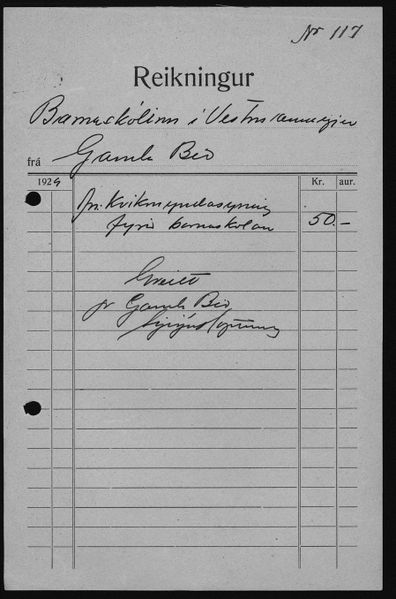 Nr 117
Reikningur
Barnaskólinn í Vestmannaeyjum
frá Gamla Bio
1924 Kr. aur.
fyrir kvikmyndasýning
fyrir barnaskólan 50.-
Greitt
pr Gamla Bio